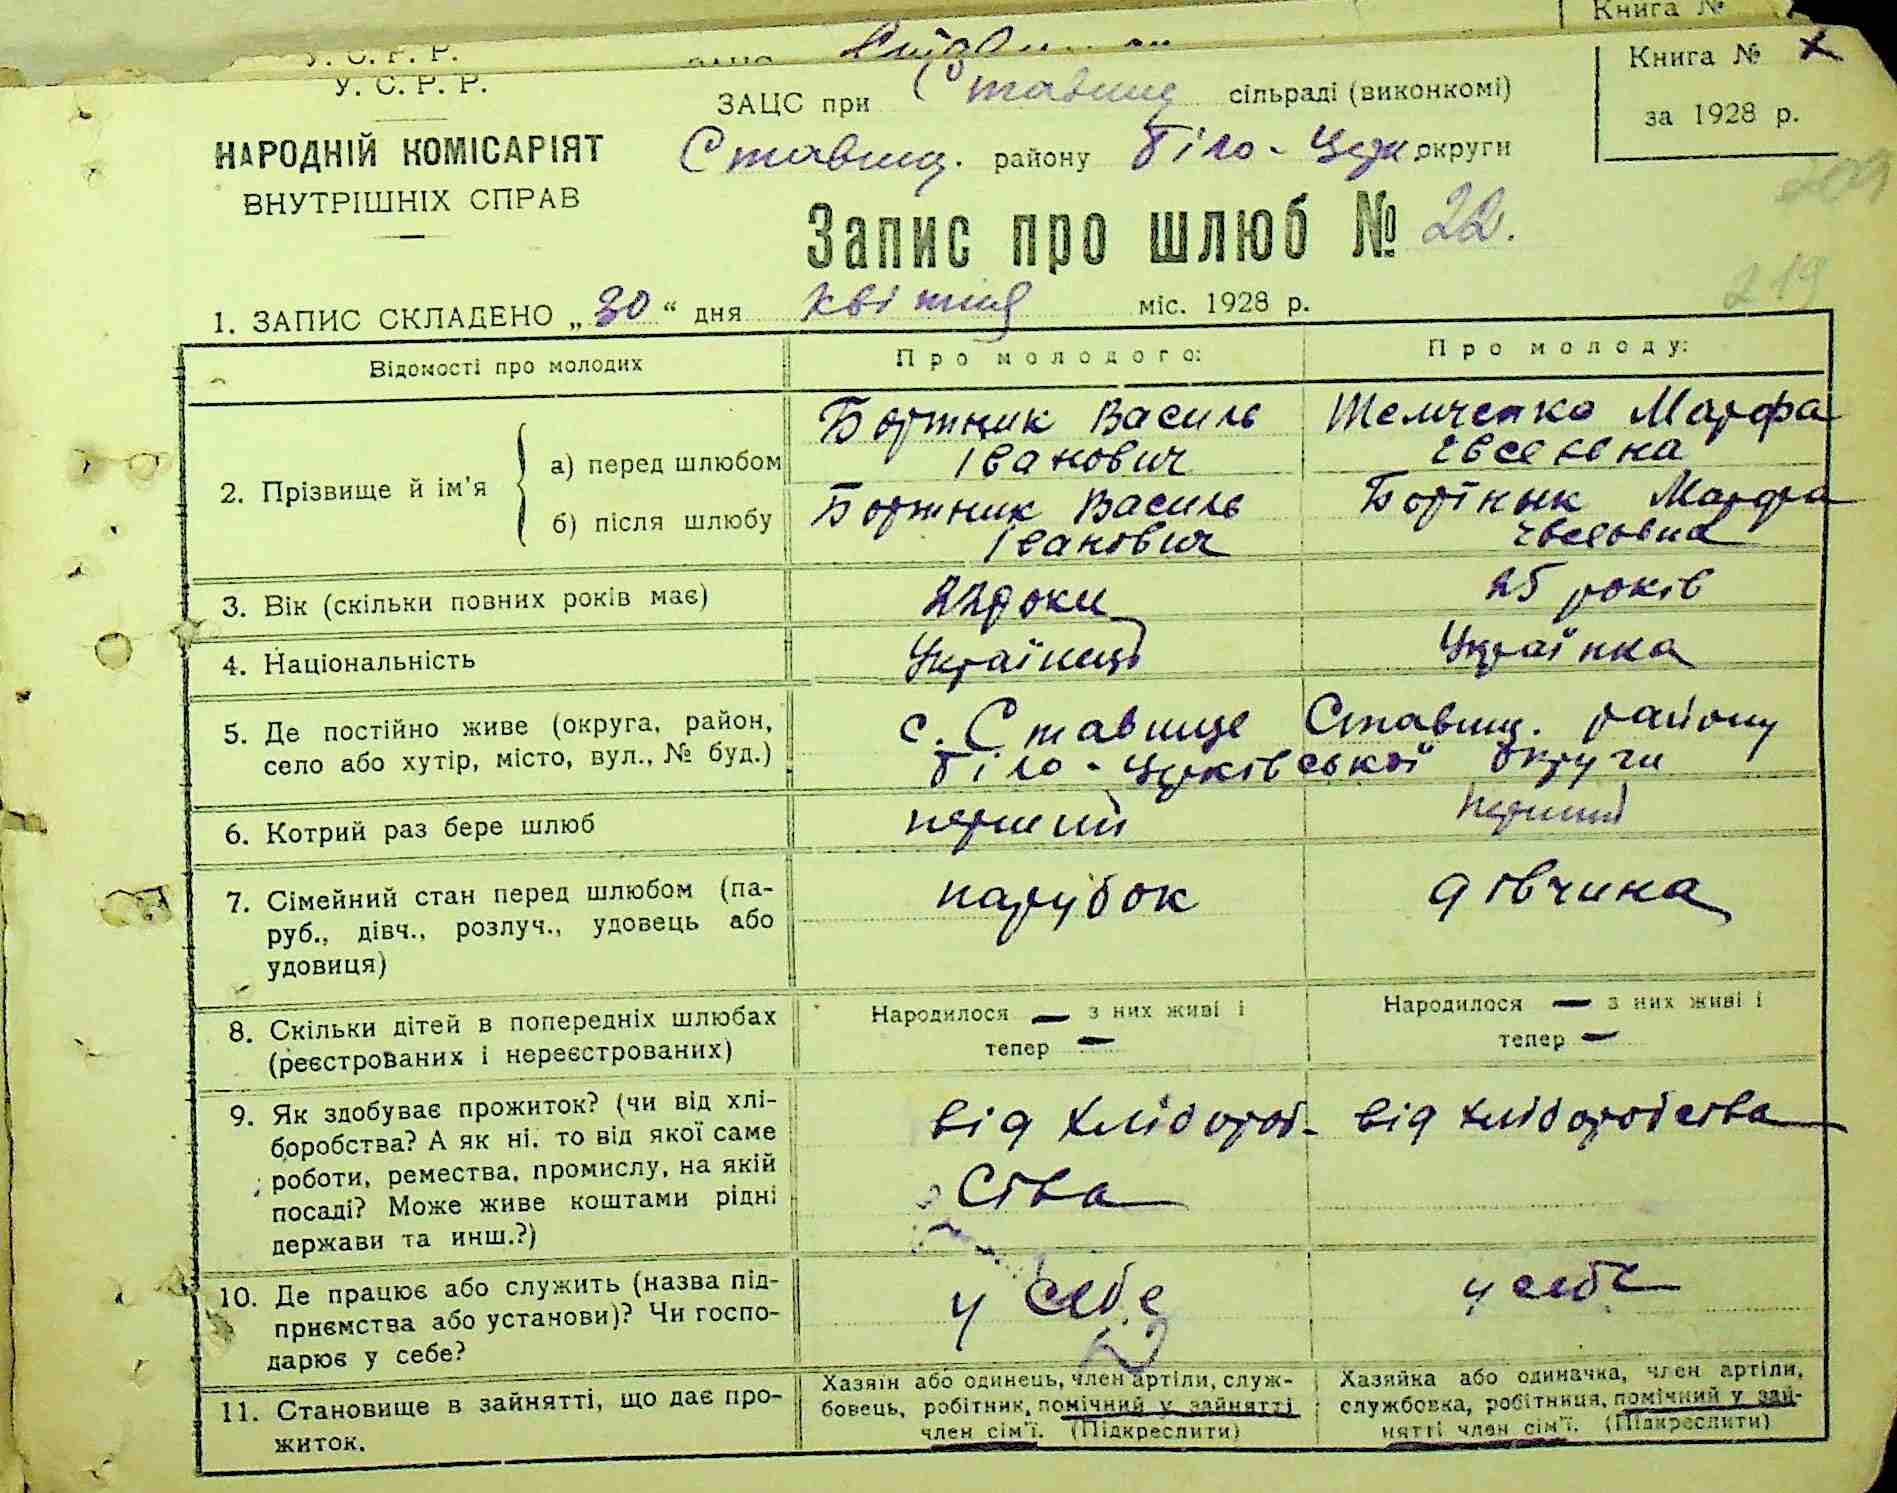 Книга №
У. С. Р. Р.
У. С. Р. Р.
ЗАЦС при Ставищ сільраді (виконкомі)
Книга №
за 1928 р.
НАРОДНІЙ КОМІСАРІЯТ
ВНУТРІШНІХ СПРАВ
Ставищ. району Біло-Церк. округи
Запис про шлюб № 22.
219
1. ЗАПИС СКЛАДЕНО „30“ дня квітня міс. 1928 р.
Відомості про молодих
Про молодого:
Про молоду:
2. Прізвище й ім'я
а) перед шлюбом
Бортник Василь
Іванович
Темченко Марфа
Євсеевна
б) після шлюбу
Бортник Василь
Іванович
Бортник Марфа
Євсеовна
3. Вік (скільки повних років має)
22 роки
25 років
4. Національність
Українець
Українка
5. Де постійно живе (округа, район,
село або хутір, місто, вул., № буд.)
с. Ставище Ставищ. району
Біло-Церківської округи
6. Котрий раз бере шлюб
перший
перший
7. Сімейний стан перед шлюбом (па-
руб., дівч., розлуч., удовець або
удовиця)
парубок
дівчина
8. Скільки дітей в попередніх шлюбах
(реєстрованих і нереєстрованих)
Народилося — з них живі і
тепер —
Народилося — з них живі і
тепер —
9. Як здобуває прожиток? (чи від хлі-
боробства? А як ні. то від якої саме
роботи, ремества, промислу, на якій
посаді? Може живе коштами рідні
держави та инш.?)
від хлібороб-
ства
від хліборобства
10. Де працює або служить (назва під-
приємства або установи)? Чи госпо-
дарює у себе?
у себе
у себе
11. Становище в зайнятті, що дає про-
житок.
Хазяїн або одинець, член артіли, служ-
бовець, робітник, помічний у зайнятті
член сім'ї. (Підкреслити)
Хазяйка або одиначка, член артіли,
службовка, робітниця, помічний у зай-
нятті член сім'ї. (Підкреслити)